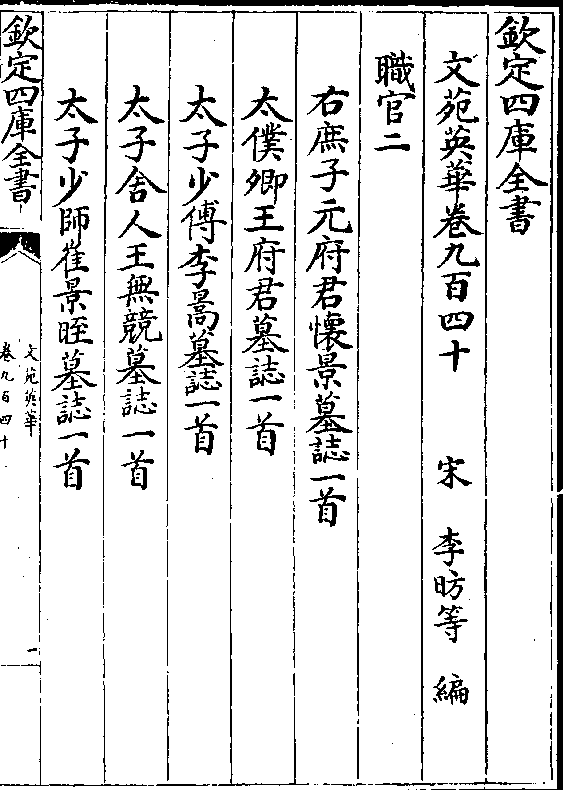 欽定四庫全書
文苑英華卷九百四十 宋 李昉等 編
職官二
右庶子元府君懐景墓誌一首
太僕卿王府君墓誌一首
太子少傅李暠墓誌一首
太子舎人王無競墓誌一首
太子少師崔景晊墓誌一首
欽定四庫全書
文苑英華
卷九百四十
一